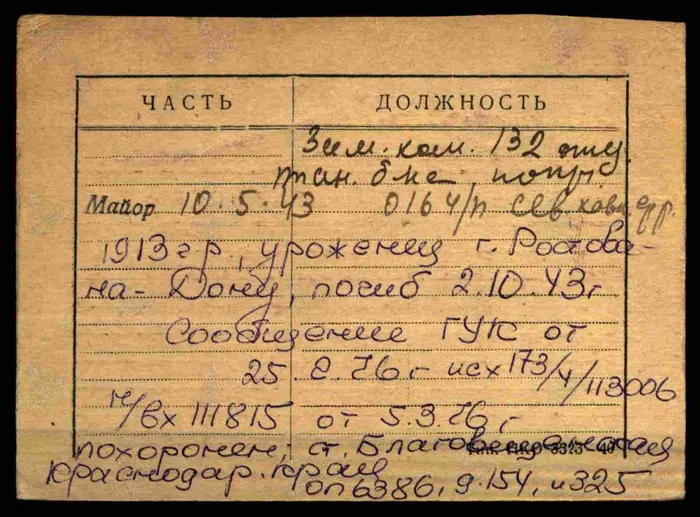 ЧАСТЬ ДОЛЖНОСТЬ
Зам. ком. 132 отд.
тан. б-на
Майор 10.5.43 0164/п Сев. Кав. фр.
1913 г р, уроженец г. Ростова-
на-Дону, погиб 2.10.43 г
Сообщение ГУК от
25.2.76 г исх 173/4/113006
вх 111815 от 5.3.76 г
похоронен, ст. Благовещенская
Краснодар. край
оп 6386, д. 154, л 325